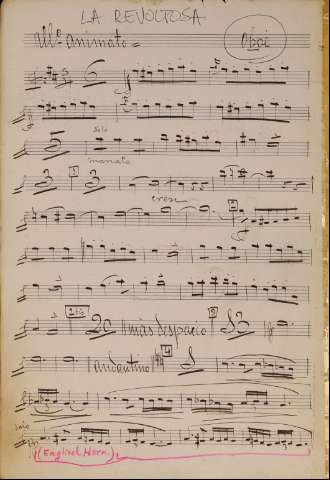 LA REVOLTOSA
All.º animato =
oboi
3 6
5 Solo
marcato
3 1 3
cresc
2
2 bis 20 más despacio 3 13
andantino 4 1
Solo
(English Horn)